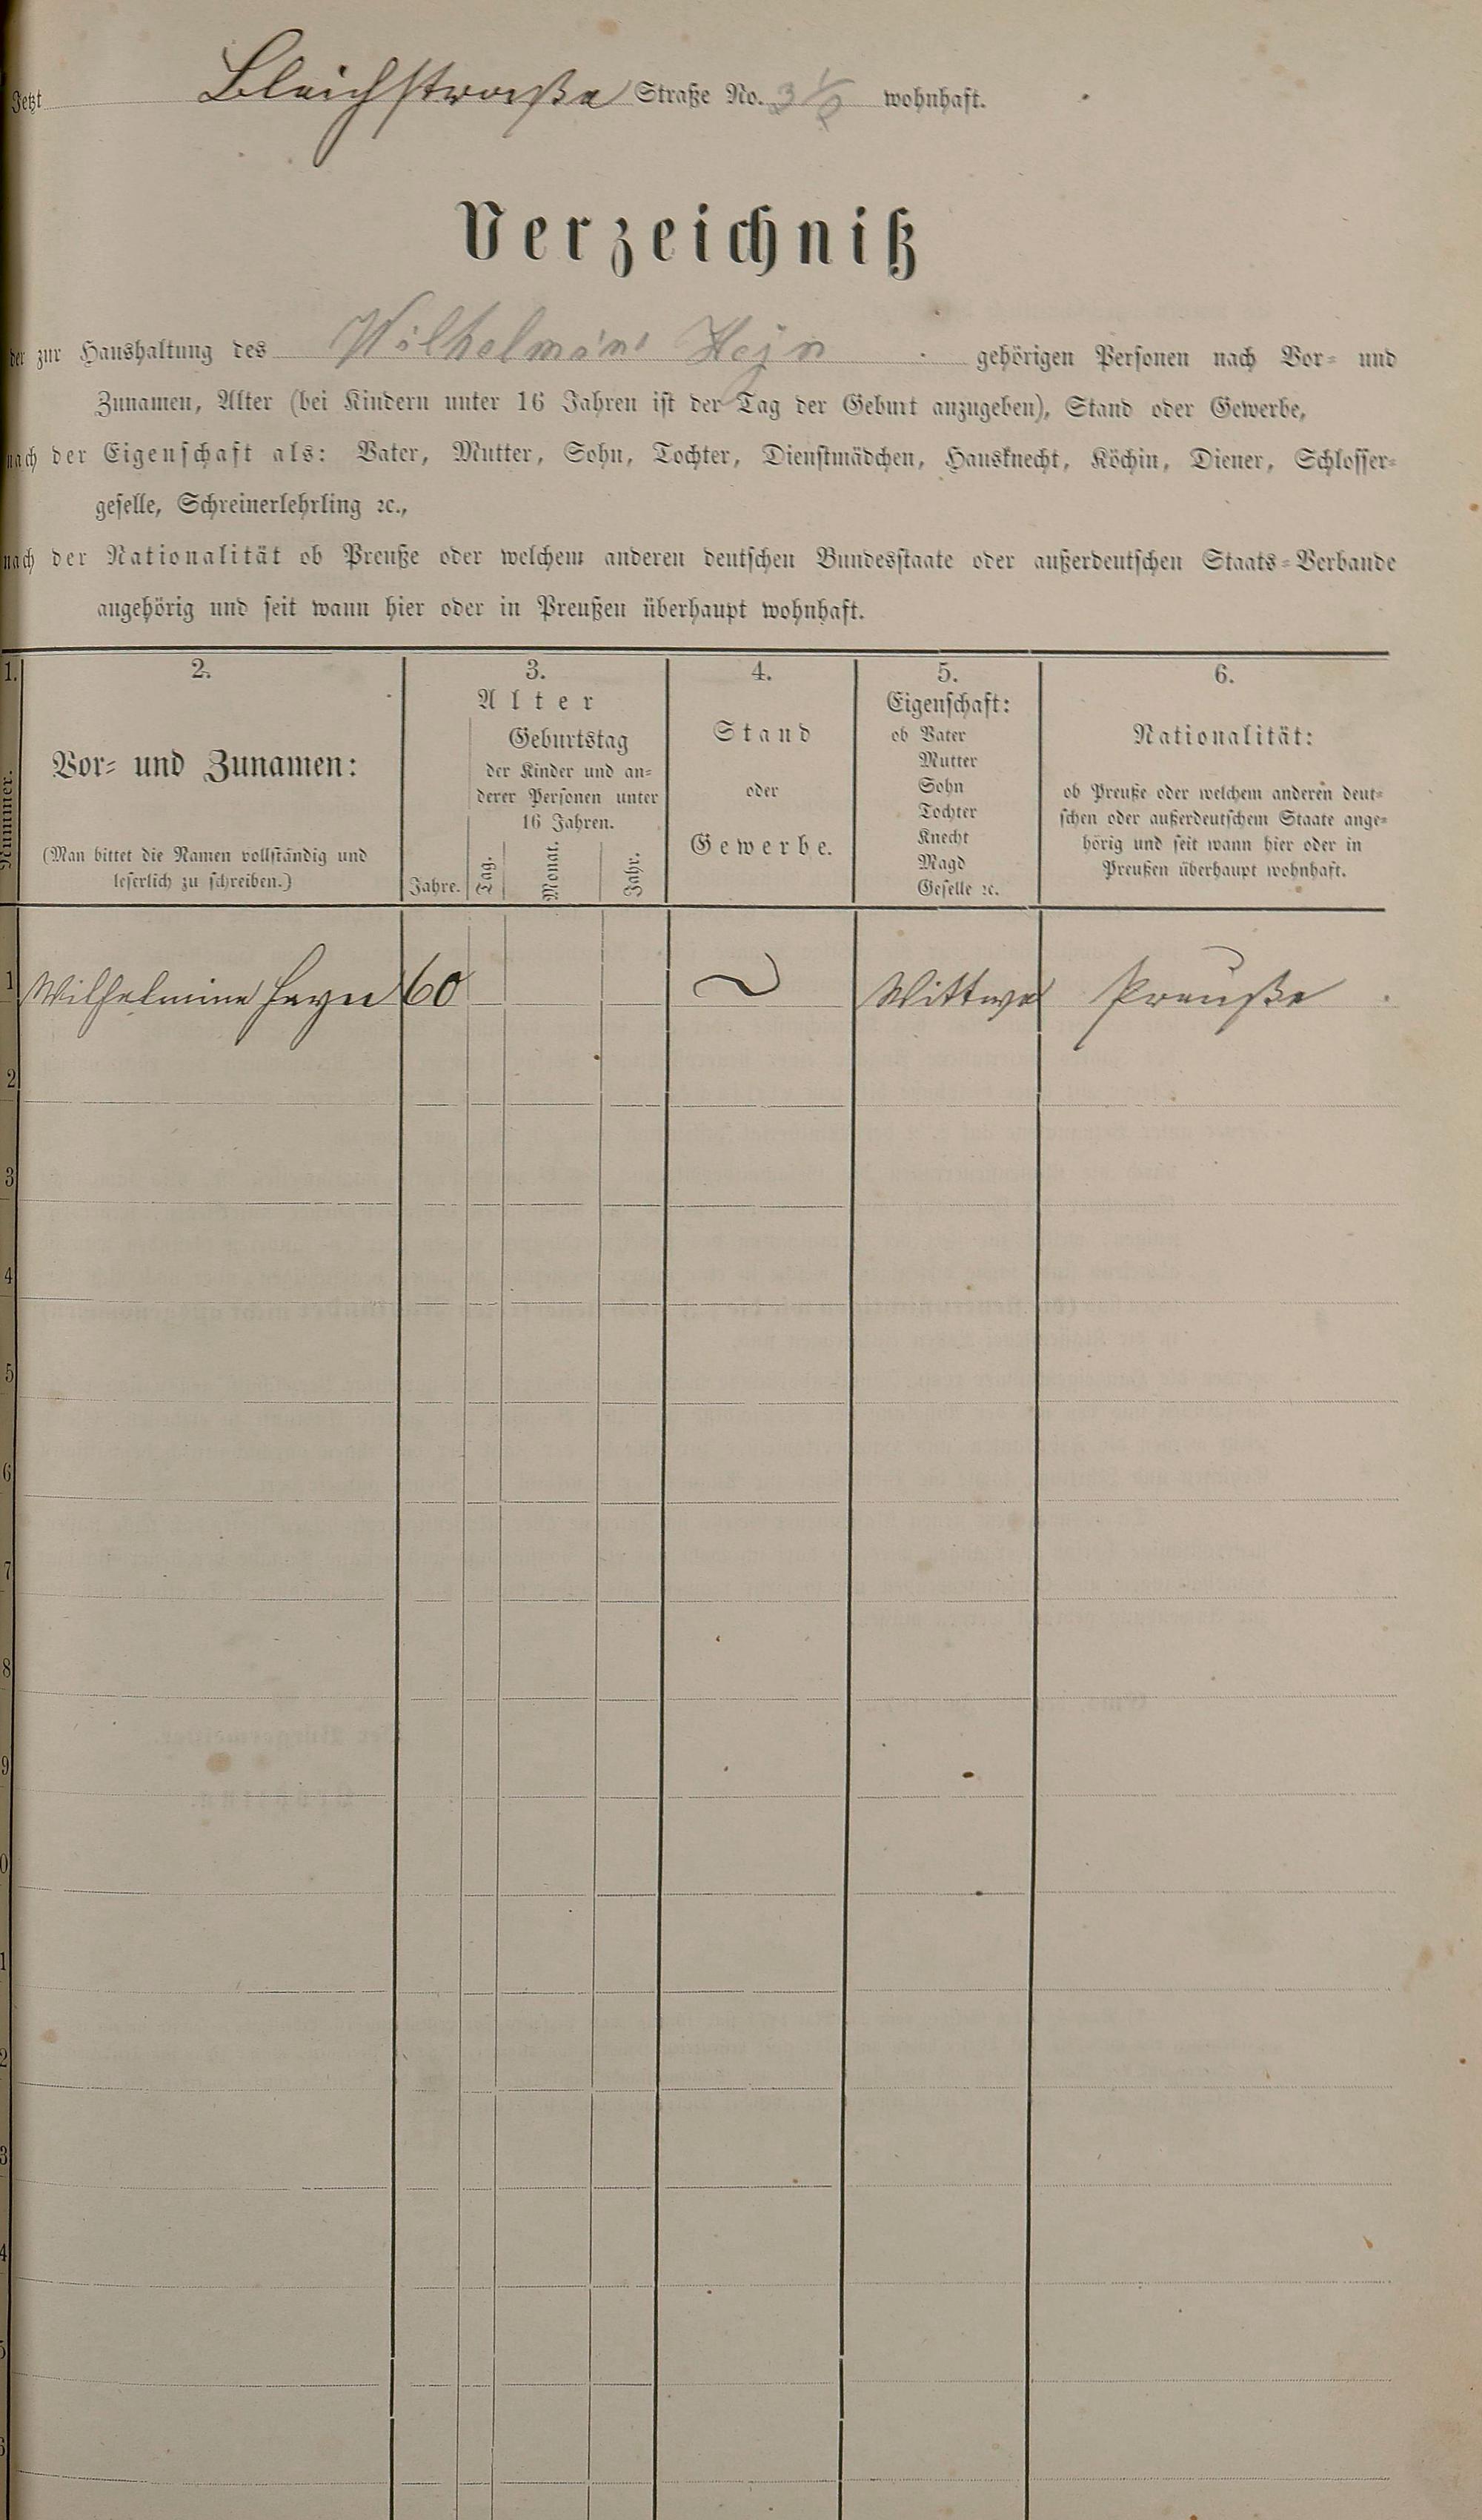 Jetzt Bleichstraße Straße No. 3 1/2 wohnhaft.
Verzeichniß
der zur Haushaltung des Wilhelmine Heyn gehörigen Personen nach Vor- und
Zunamen, Alter (bei Kindern unter 16 Jahren ist der Tag der Geburt anzugeben), Stand oder Gewerbe,
nach der Eigenschaft als: Vater, Mutter, Sohn, Tochter, Dienstmädchen, Hausknecht, Köchin, Diener, Schlosser-
geselle, Schreinerlehrling ꝛc.,
nach der Nationalität ob Preuße oder welchem anderen deutschen Bundesstaate oder außerdeutschen Staats-Verbande
angehörig und seit wann hier oder in Preußen überhaupt wohnhaft.
1.
Nummer.
2.
Vor- und Zunamen:
(Man bittet die Namen vollständig und
leserlich zu schreiben.)
3.
Alter
Jahre.
Geburtstag
der Kinder und an-
derer Personen unter
16 Jahren.
Tag.
Monat.
Jahr.
4.
Stand
oder
Gewerbe.
5.
Eigenschaft:
ob Vater
Mutter
Sohn
Tochter
Knecht
Magd
Geselle ꝛc.
6.
Nationalität:
ob Preuße oder welchem anderen deut-
schen oder außerdeutschem Staate ange-
hörig und seit wann hier oder in
Preußen überhaupt wohnhaft.
1 Wilhelmine Heyn 60 Wittwe Preuße
2
3
4
5
6
7
8
9
0
1
2
3
4
5
6